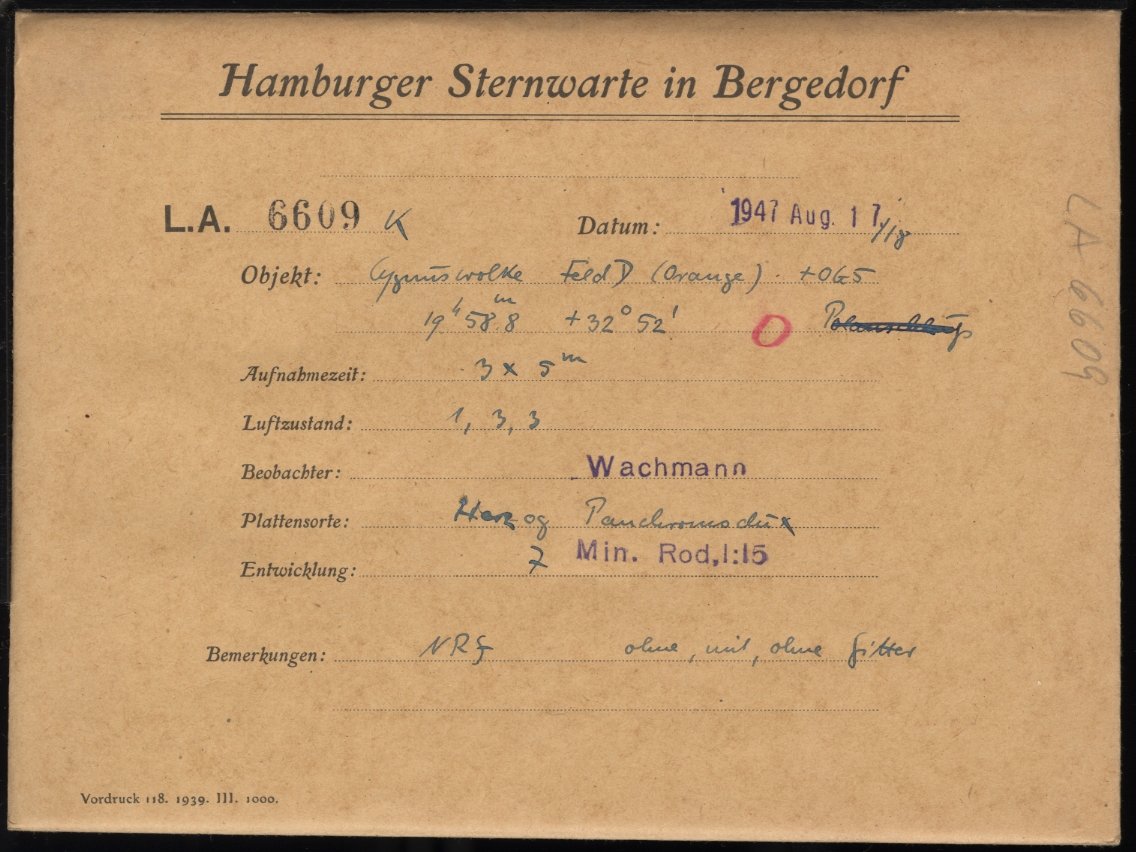 Hamburger Sternwarte in Bergedorf
L.A. 6609 K Datum: 1947 Aug. 17/18
Objekt: Cygnuswolke Feld D (Orange) +OG5
19h 58m.8 +32° 52' O
Aufnahmezeit: 3 x 5m
Luftzustand: 1, 3, 3
Beobachter: Wachmann
Plattensorte: Herzog Panchromodux
Entwicklung: 7 Min. Rod, 1:15
Bemerkungen: ohne, mit, ohne Gitter
Vordruck 118. 1939. III. 1000.
LA 6609